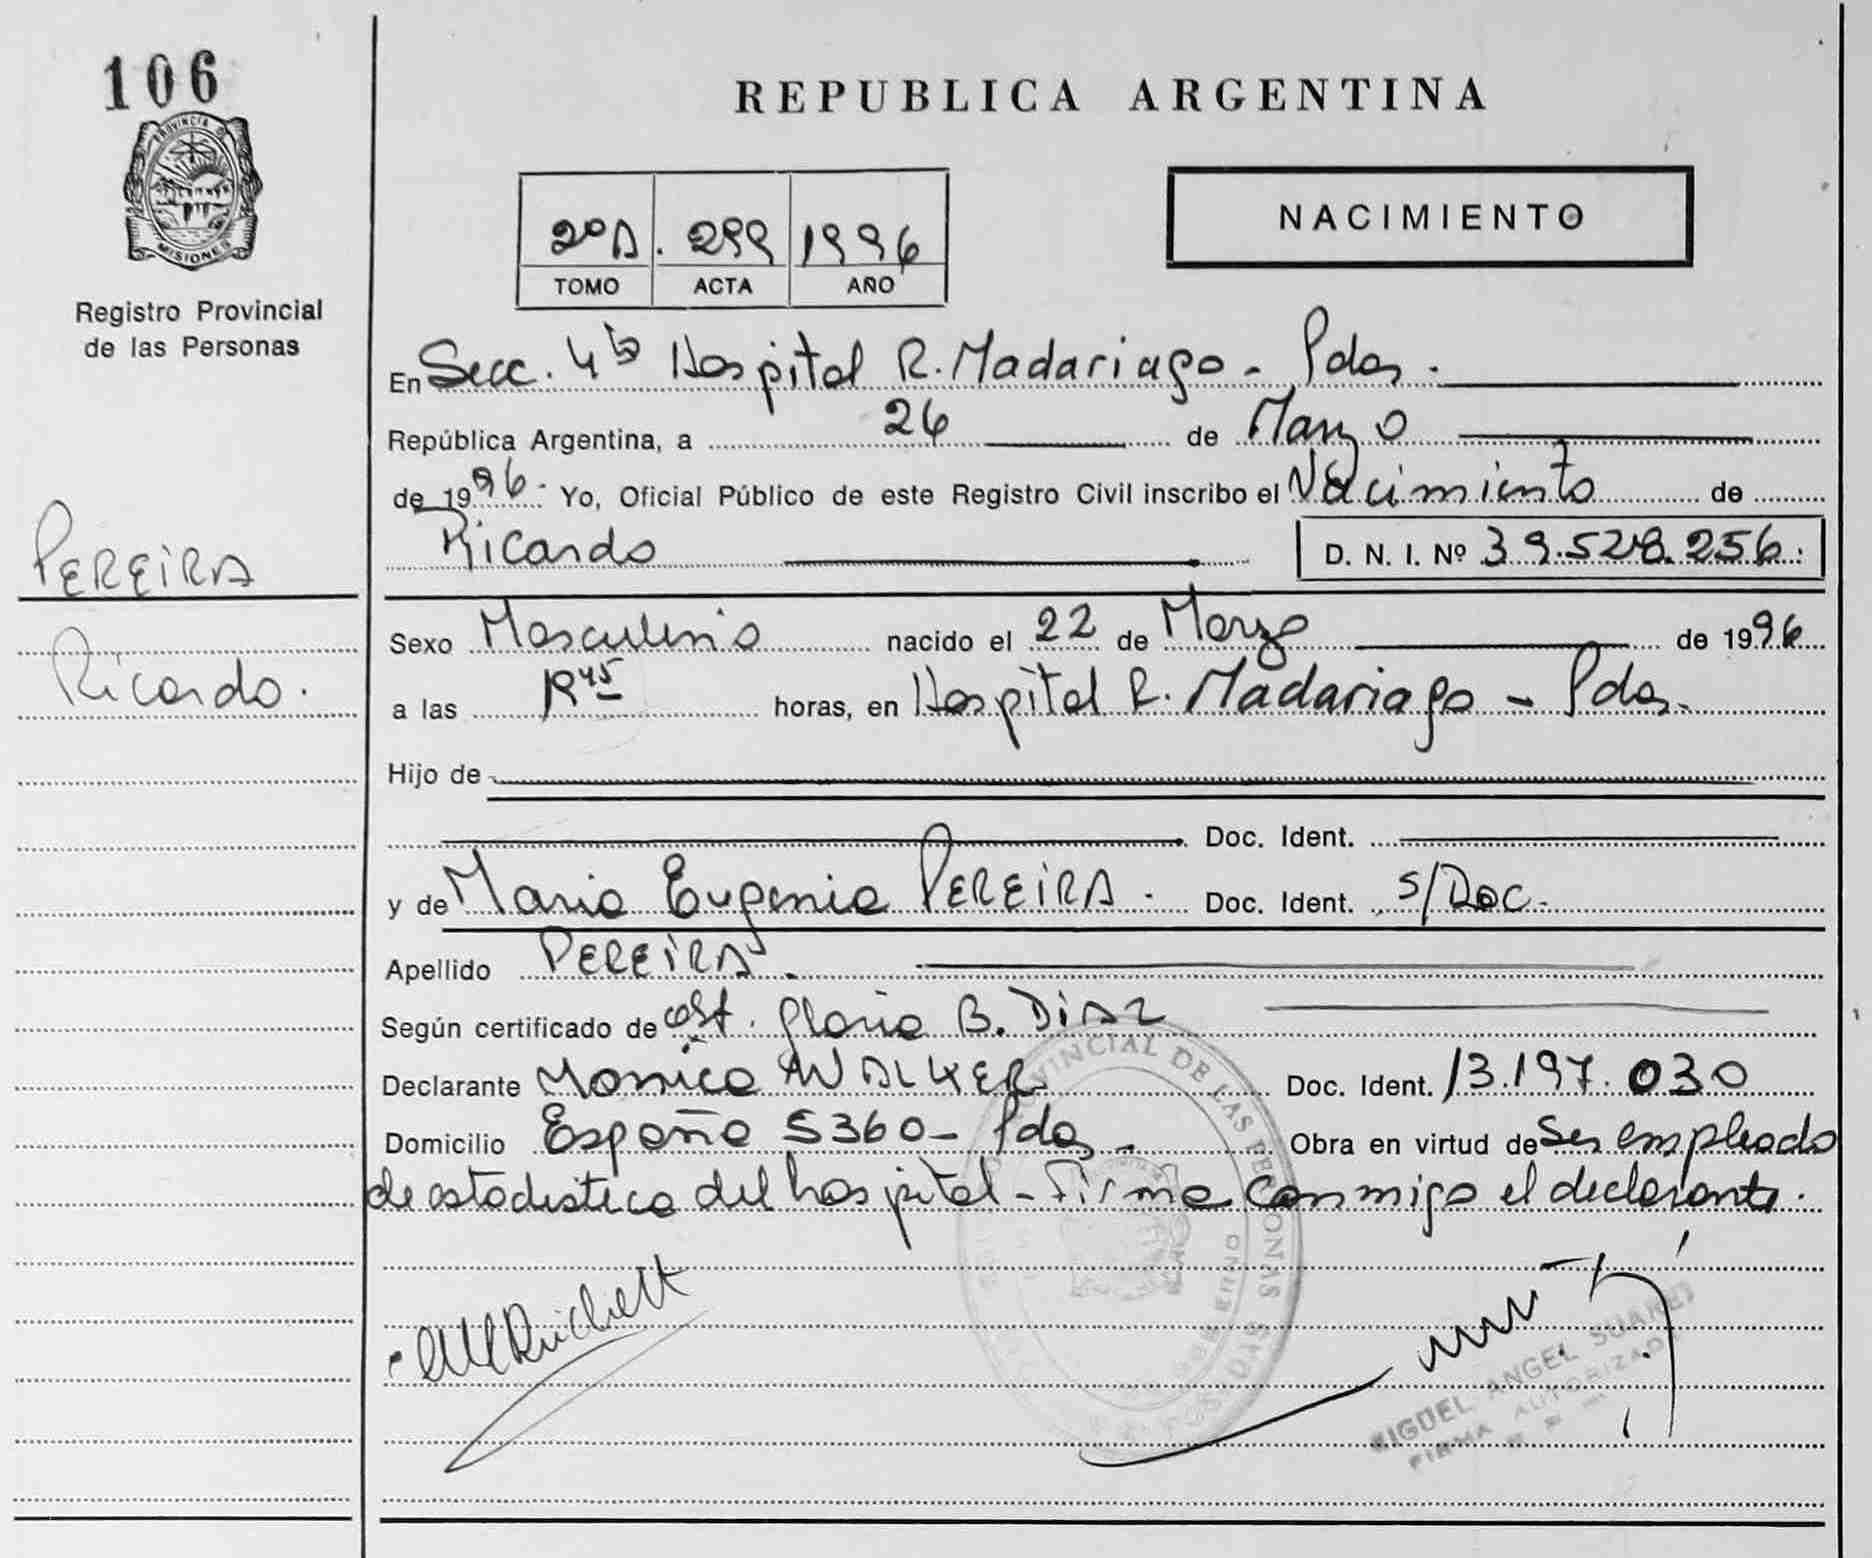 106
PROVINCIA DE
MISIONES
Registro Provincial
de las Personas
PEREIRA
Ricardo.
REPUBLICA ARGENTINA
2º A. 299 1996
TOMO ACTA AÑO
NACIMIENTO
En Secc. 4ta Hospital R. Madariaga - Pdas.
República Argentina, a 26 de Marzo
de 1996. Yo, Oficial Público de este Registro Civil inscribo el Nacimiento de
Ricardo D. N. I. Nº 39.528.256.
Sexo Masculino nacido el 22 de Marzo de 1996
a las 19 45 horas, en Hospital R. Madariaga - Pdas.
Hijo de
Doc. Ident.
y de Maria Eugenia PEREIRA. Doc. Ident. s/Doc.
Apellido PEREIRA.
Según certificado de obst. Gloria B. DiAZ
Declarante Monica WALKER Doc. Ident. 13.197.030
Domicilio España 5360 - Pdas. Obra en virtud de Ser empleado
de estadistica del hospital - Firma conmigo el declarante.
PROVINCIAL DE LAS PERSONAS
POSADAS
MIGUEL ANGEL SUAREZ
FIRMA AUTORIZADA